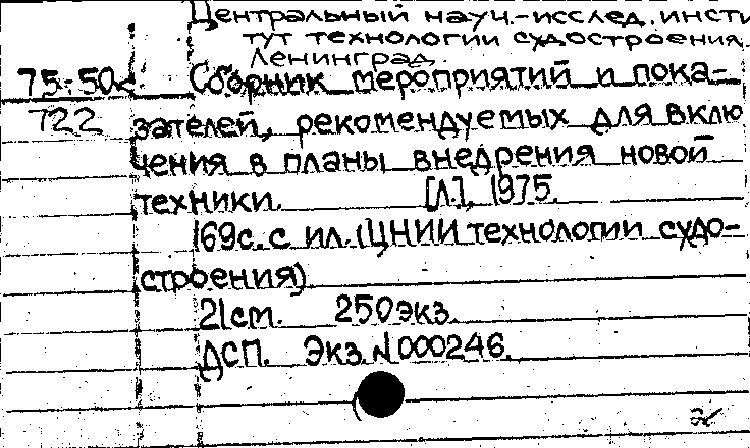 Центральный науч.-исслед. инсти
тут технологии судостроения.
Ленинград.
75-50к Сборник мероприятий и пока-
722 зателей, рекомендуемых для вклю
чения в планы внедрения новой
техники. [Л.], 1975.
169с. с ил. (ЦНИИ технологии судо-
строения)
21см. 250экз.
ДСП. Экз. N000246.